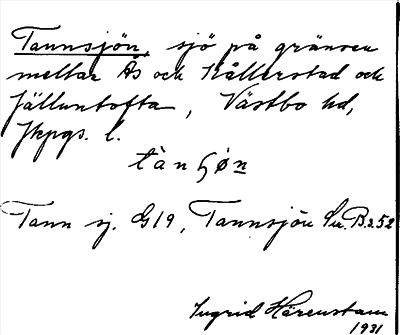 Tannsjön, sjö på gränsen
mellan Ås och Kållerstad och
Jälluntofta, Västbo hd,
Jkpgs. l.
tànʃøn
Tann sj. G19, Tannsjön Su.B.252
Ingrid Härenstam
1931